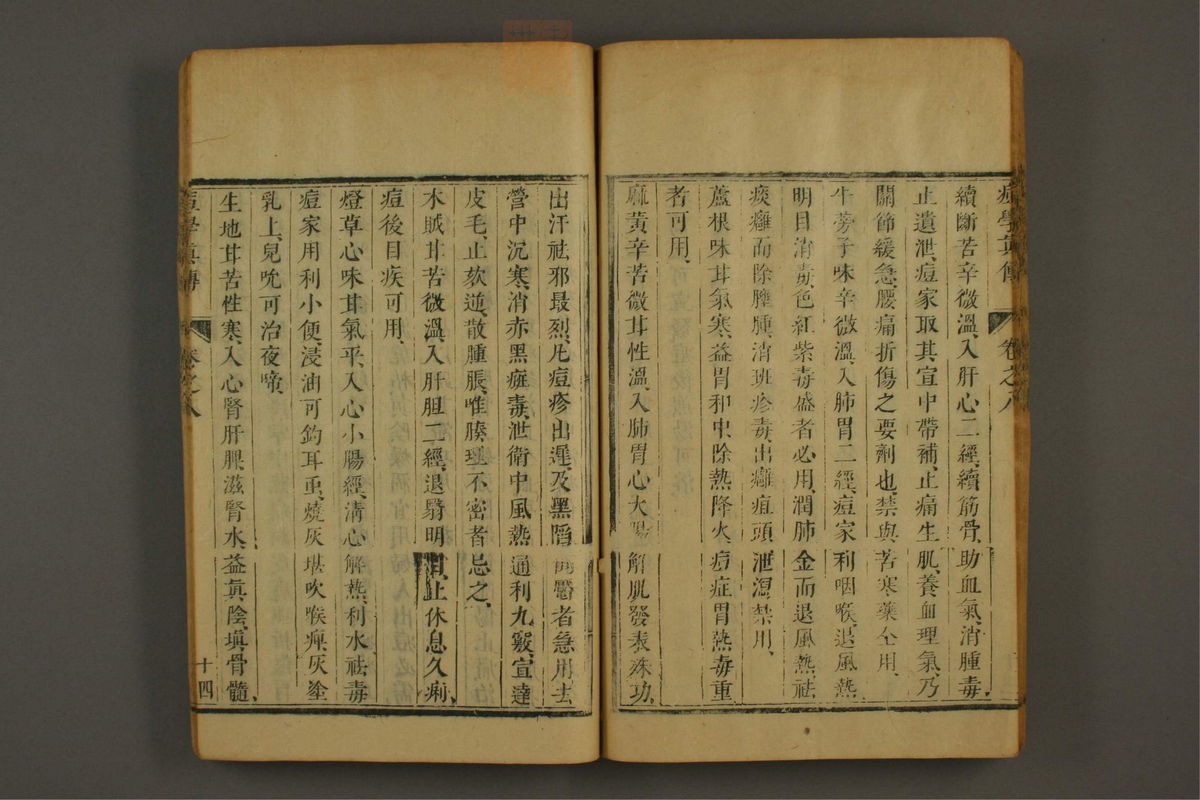 痘學真傳 卷之八
續斷苦辛微溫、入肝心二經、續筋骨、助血氣、消腫毒、
止遺泄、痘家取其宣中帶補、止痛生肌、養血理氣、乃
關節緩急、腰痛折傷之要劑也、禁與苦寒藥仝用、
牛蒡子味辛微溫、入肺胃二經、痘家利咽喉、退風熱、
明目消毒、色紅紫毒盛者必用、潤肺金而退風熱、祛
痰癰而除腫、消班疹毒、出癰疽頭、泄瀉禁用、
蘆根味甘氣寒、益胃和中、除熱降火、痘症胃熱毒重
者可用、
麻黃辛苦微甘性溫、入肺胃心大腸、解肌發表殊功、
出汗祛邪最烈、凡痘疹出遲、及黑陷者急用、去
營中沉寒、消赤黑疵毒、泄衛中風熱、通利九竅、宣達
皮毛、止欬逆、散腫脹、唯腠理不密者忌之、
木賊甘苦微溫、入肝胆二經、退翳明目、止休息久痢、
痘後目疾可用、
燈草心味甘氣平、入心小腸經、清心解熱、利水祛毒
痘家用利小便、浸油可釣耳虫、燒灰堪吹喉痺、灰塗
乳上、兒吮可治夜啼、
生地甘苦性寒、入心腎肝脾、滋腎水、益真陰、填骨髓、
痘學真傳 卷之八 十四